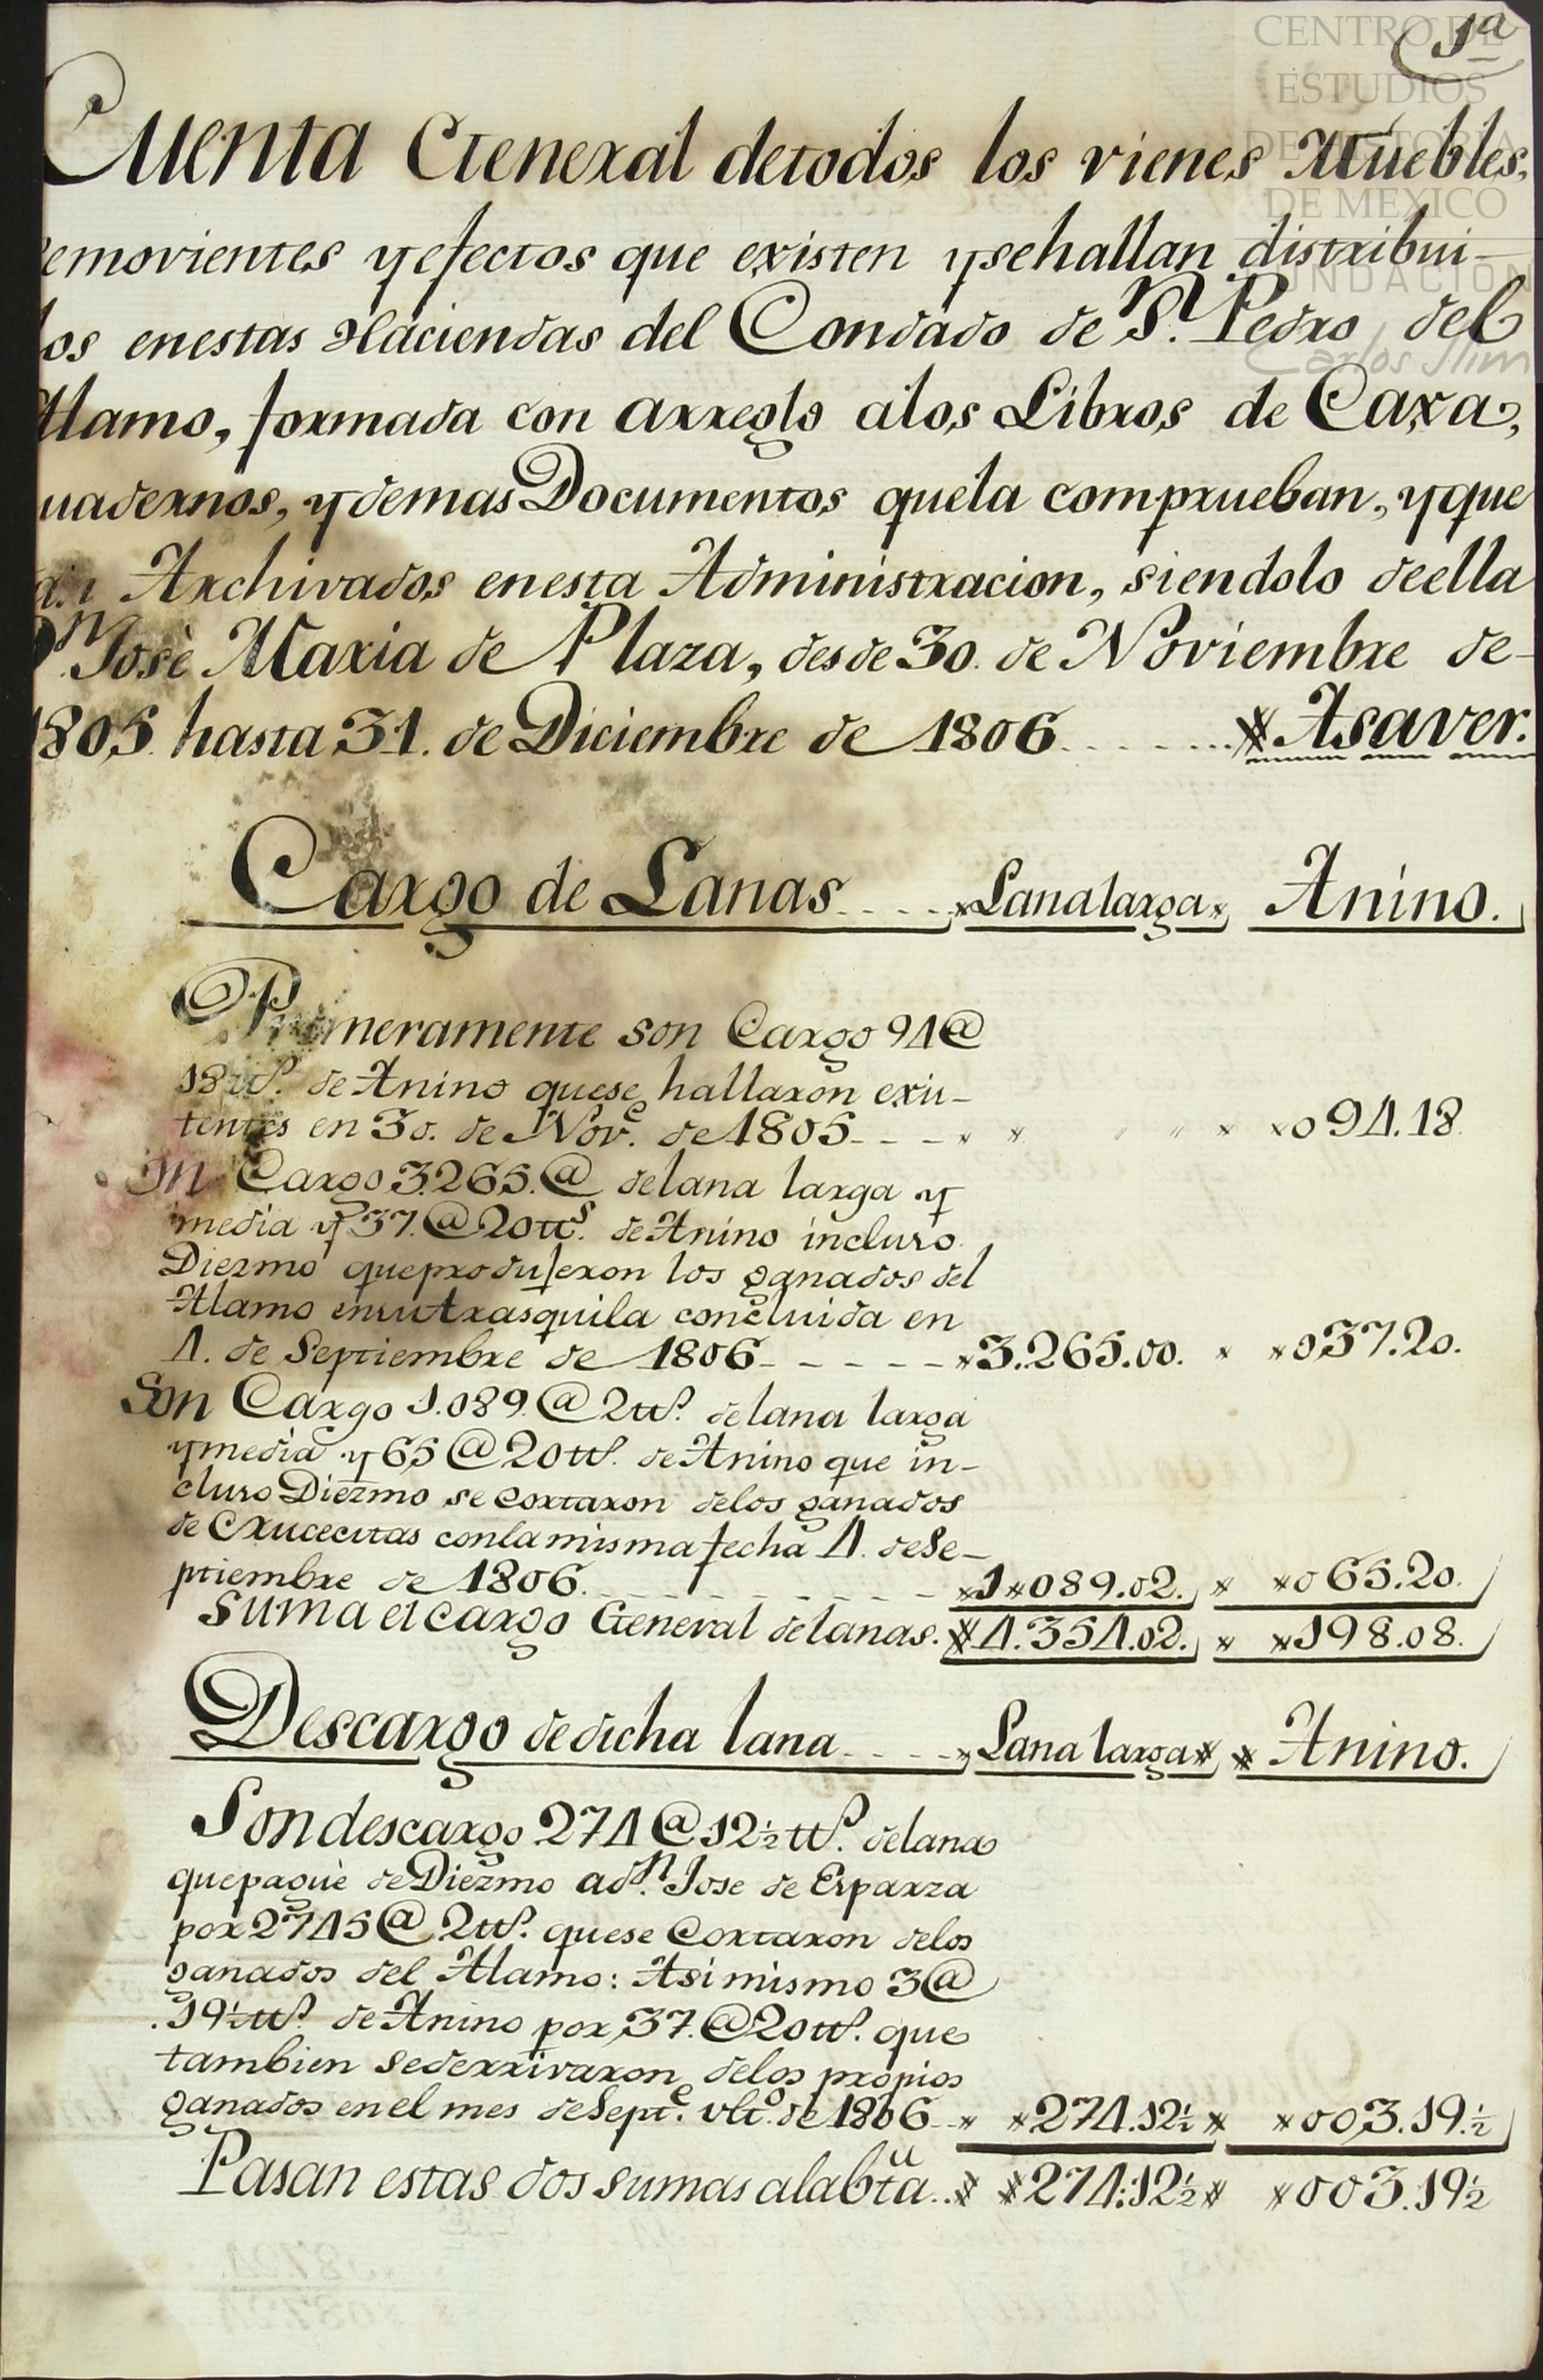 1ª
CENTRO DE
ESTUDIOS
DE HISTORIA
DE MEXICO
FUNDACIÓN
Carlos Slim
Cuenta General detodos los vienes Muebles,
emovientes y efectos que existen y sehallan distribui-
dos enestas Haciendas del Condado de Sn. Pedro del
Alamo, formada con arreglo alos Libros de Caxa,
uadernos, y demas Documentos quela comprueban, y que
an Archivados enesta Administracion, siendolo deella
Dn. Josè Maria de Plaza, desde 30. de Noviembre de-
1805 hasta 31. de Diciembre de 1806 Asaver.
Cargo de Lanas Lana larga Anino.
Primeramente son Cargo 94@
18 tts. de Anino quese hallaron exis-
tentes en 30. de Nove. de 1805 094.18
Son Cargo 3.265.@ delana larga y
media y 37.@ 20 tts. de Anino incluso
Diezmo queprodujeron los ganados del
Alamo ensu trasquila concluida en
4. de Septiembre de 1806 3.265.00. 037.20.
Son Cargo 1.089.@ 2 tts. delana larga
y media y 65@ 20 tts. de Anino que in-
cluso Diezmo se cortaron delos ganados
de Crucecitas conla misma fecha 4. deSe-
ptiembre de 1806. 1089.02. 065.20.
Suma el cargo General delanas. 4.354.02. 198.08.
Descargo dedicha lana Lana larga Anino.
Son descargo 274@ 12½ tts. delana
quepaguè de Diezmo adn. Jose de Esparza
por 2745@ 2 tts. quese Cortaron delos
ganados del Alamo: Asimismo 3@
19½ tts. de Anino por 37.@ 20 tts. que
tambien sederrivaron delos propios
ganados enel mes deSepte. ulto. de 1806 274.12½ 003.19.½
Pasan estas dos sumas ala bta. 274:12½ 003.19½